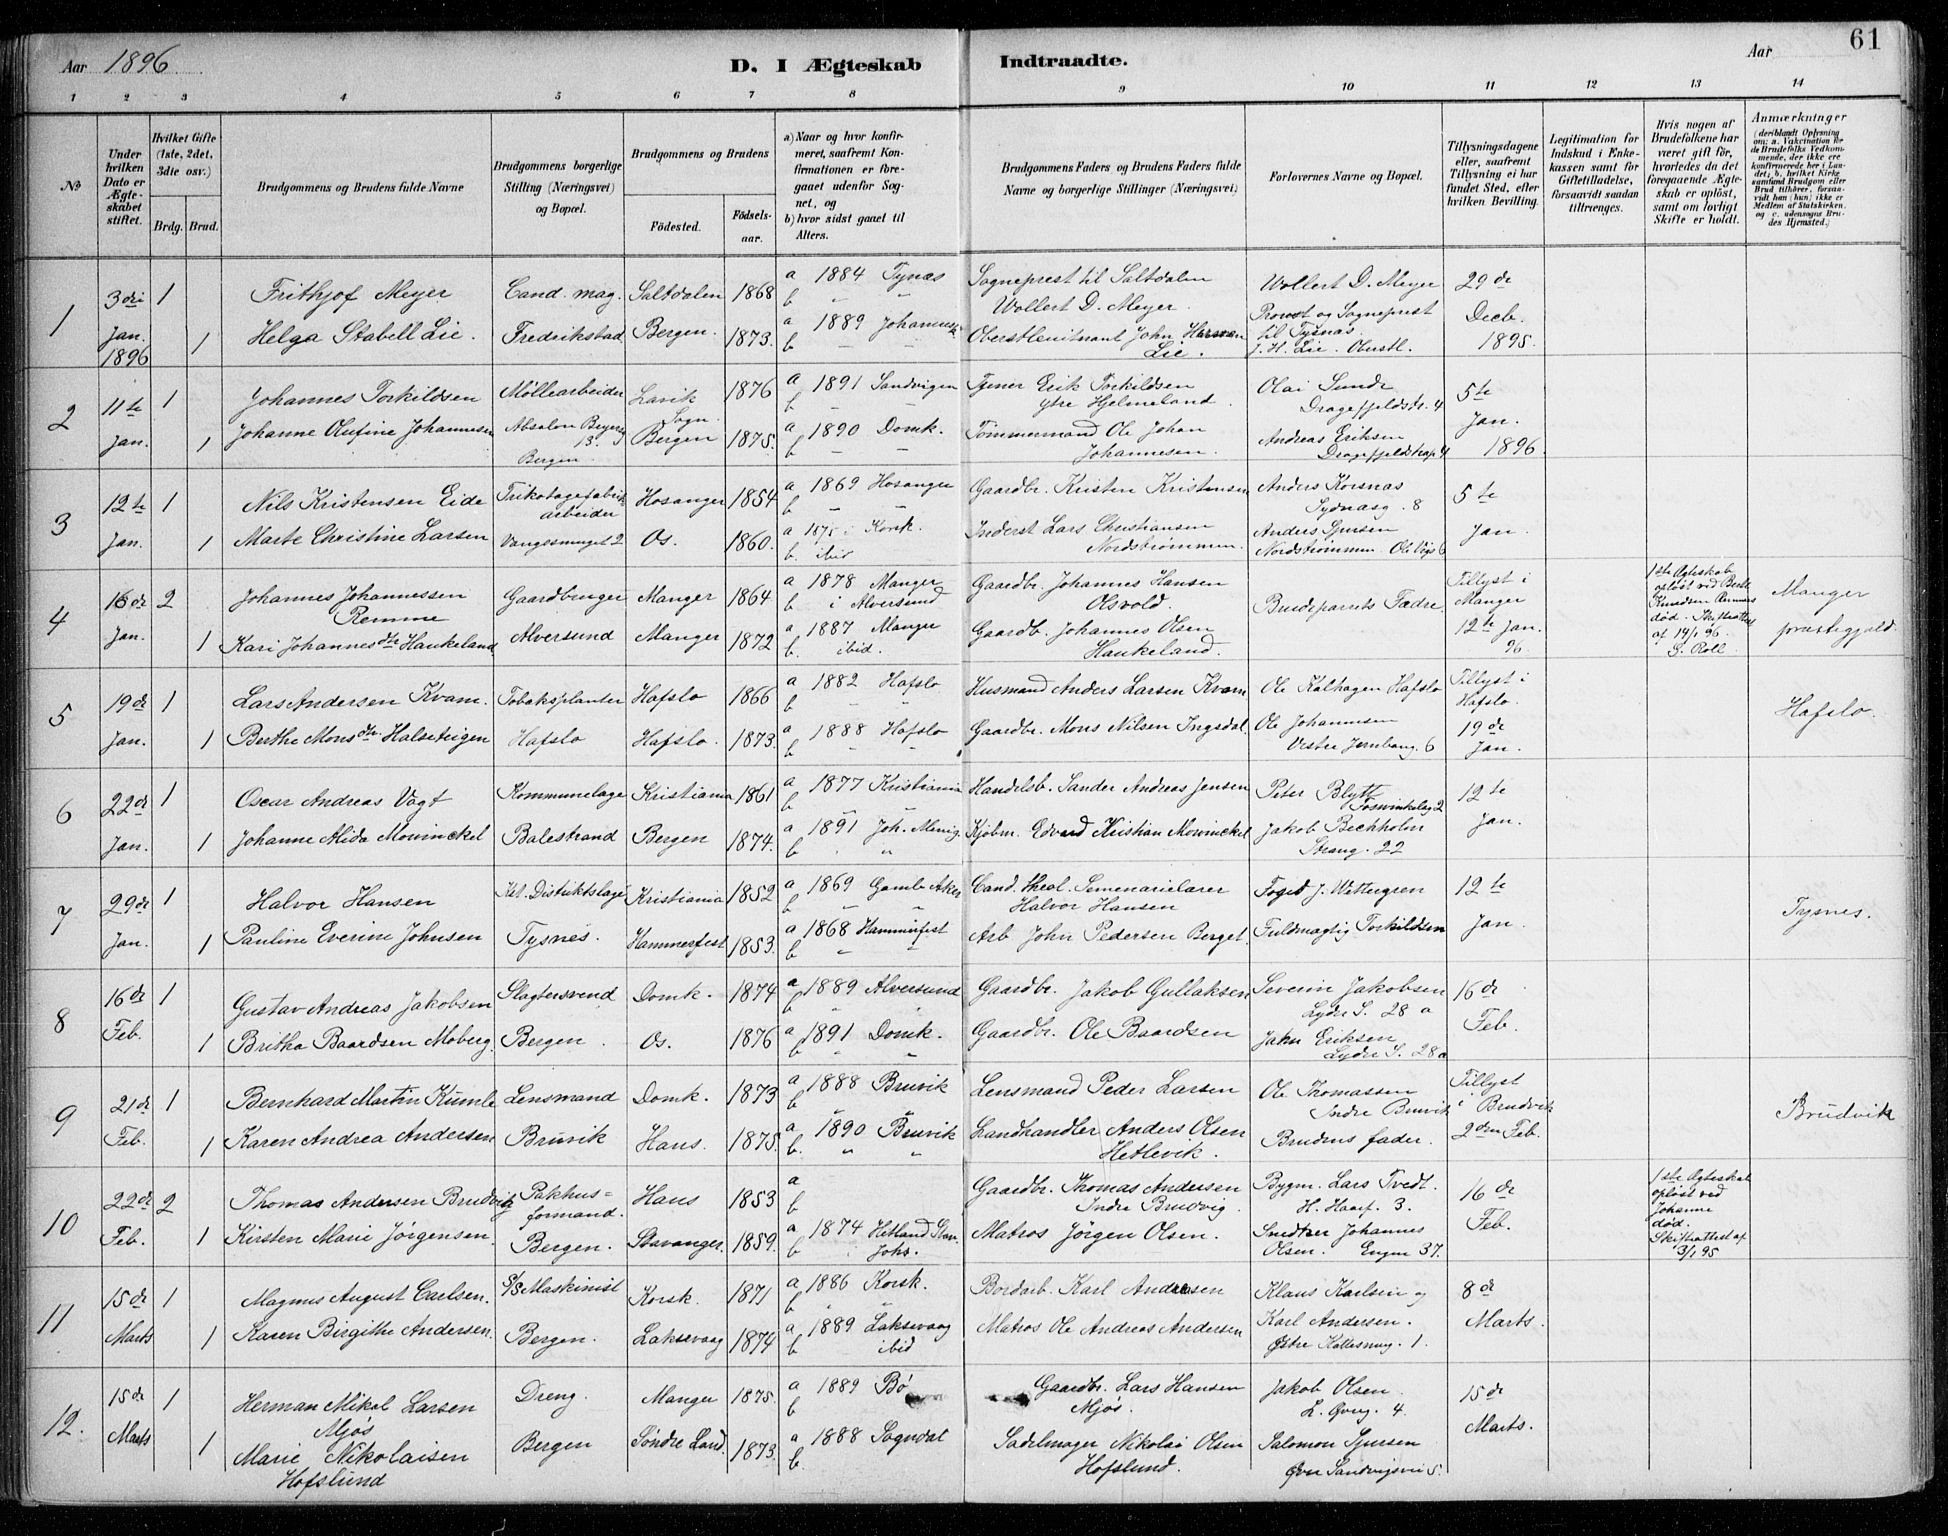 Aar 1896
D. I Ægteskab Indtraadte.
Aar
61
1 2 3 4 5 6 7 8 9 10 11 12 13 14
№
Under hvilken Dato er Ægteskabet stiftet.
Hvilket Gifte (1ste, 2det, 3die osv.)
Brdg. Brud.
Brudgommens og Brudens fulde Navne
Brudgommens borgerlige Stilling (Næringsvei) og Bopæl.
Brudgommens og Brudens
Födested. Födselsaar.
a) Naar og hvor konfirmeret, saafremt Konfirmationen er foregaaet udenför Sognet, og
b) hvor sidst gaaet til Alters.
Brudgommens Faders og Brudens Faders fulde Navne og borgerlige Stillinger (Næringsvei)
Forlovernes Navne og Bopæl.
Tillysningsdagene eller, saafremt Tillysning ei har fundet Sted, efter hvilken Bevilling.
Legitimation for Indskud i Enkekassen samt for Giftetilladelse, forsaavidt saadan tiltrænges.
Hvis nogen af Brudefolkene har været gift för, hvorledes da det foregaaende Ægteskab er oplöst, samt om lovligt Skifte er holdt.
Anmærkninger (deriblandt Oplysning om: a. Vakcination for de Brudefolks Vedkommende, der ikke ere konfirmerede her i Landet; b. hvilket Kirkesamfund Brudgom eller Brud tilhörer, forsaavidt han (hun) ikke er Medlem af Statskirken, og c. udensogns Brudes Hjemsted.)
1 3die 1 Frithjof Meyer Cand. mag. Saltdalen 1868 a 1884 Tynæs Sogneprest til Saltdalen Wollert D. Meyer 29de
b " " Wollert D. Meyer. Provst og Sogneprest
Jan. 1896 1 Helga Stabell Lie. Fredrikstad Bergen. 1873. a 1889 Johannesk. Oberstleitnant John Herman til Tysnæs. Decb. 1895.
b " " Lie. J. H. Lie. Oberstl.
2 11te 1 Johannes Torkildsen Möllearbeider Lavik Sogn. 1876 a 1891 Sandvigen Tjener Erik Torkildsen Olai Sunde 5te
b " " ytre Hjelmeland. Dragefjeldstr. 4
Jan. 1 Johanne Olufine Johannesen Absalon Beyers 13. Bergen. Bergen 1875. a 1890 Domk. Tömmermand Ole Johan Andreas Eriksen Jan. 1896.
b " " Johannesen. Dragefjeldstrap 4
3 12te 1 Nils Kristensen Eide Trikotagefabrik Hosanger 1854 a 1869 Hosanger Gaardbr. Kristen Kristensen Anders Korsnæs 5te
arbeider b " " Sydnæsg. 8
Jan. 1 Marte Christine Larsen Vangssmuget 2 Os. 1860. a 1875 Korsk. Inderst Lars Christiansen Anders Sjursen Jan.
b ibid Nordströmmen. Nordströmmen. Ole Vigs 6
4 16de 2 Johannes Johannessen Gaardbruger Manger 1864 a 1878 Manger Gaardbr. Johannes Hansen Brudeparrets Fædre Tillyst i Manger 12te Jan. 96. Manger præstegjæld.
Remme b i Alversund Olsvold.
Jan. 1 Kari Johannesdtr Haukeland Alversund Manger 1872 a 1887 Manger Gaardb. Johannes Olsen
b. ibid. Haukeland.
1ste Ægteskab oplöst ved död. Skifteattest af 14/1 96. S. Roll
5 19de 1 Lars Andersen Kvam. Tobaksplanter Hafslo 1866 a 1882 Hafslo Husmand Anders Larsen Kvam Ole Kalhagen Hafslo Tillyst i Hafslo. Hafslo.
b " "
Jan. 1 Berthe Monsdtr. Halsteigen Hafslo Hafslo. 1873. a 1888 Hafslo Gaardbr. Mons Nilsen Ingsdal Ole Johannesen 19de Jan.
b " " Vestre Jernbang. 6
6 22de 1 Oscar Andreas Vogt Kommunelæge Kristiania 1861 a 1877 Kristiania Handelsb. Sander Andreas Jensen Peter Blytt 12te
b " " Fosvinkelsg 2
Jan. 1 Johanne Alida Mowinckel Balestrand Bergen 1874. a 1891 Joh. Menig. Kjöbm. Edvard Kristian Mowinckel Jakob Bechholm Jan.
b " " Strang. 22
7 29de 1 Halvor Hansen Kst. Distriktslæge Kristiania 1852 a 1869 Gamle Aker Cand. theol. Semenarielærer Foged J. Wettergren 12te Tysnes.
b " " Halvor Hansen
Jan. 1 Pauline Everine Johnsen Tysnes. Hammerfest 1853. a 1868 Hammerfest Arb John Pedersen Berget. Fuldmægtig Torkildsen Jan.
b " "
8 16de 1 Gustav Andreas Jakobsen Slagtersvend Domk. 1874 a 1889 Alversund Gaardbr. Jakob Gullaksen Severin Jakobsen 16de
b " " Lyder S. 28 a
Feb. 1 Britha Baardsen Moberg. Bergen. Os. 1876 a 1891 Domk. Gaardbr. Ole Baardsen Jakn Eriksen Feb.
b " " Lyder S. 28a
9 21de 1 Bernhard Martin Kumle Lensmand Domk. 1873 a 1888 Bruvik Lensmand Peder Larsen Ole Thomassen Tillyst i Brudvik Brudvik
b " " Indre Bruvik
Feb. 1 Karen Andrea Andersen Bruvik Haus. 1875. a 1890 Bruvik Landhandler Anders Olsen Brudens fader. 2den Feb.
b. " " Hetlevik.
10 22de 2 Thomas Andersen Brudvig Pakhus= Haus 1853 a Gaardbr. Thomas Andersen Bygm. Lars Tvedt. 16de
formand. b Indre Brudvig. H. Haarf. 3.
Feb. 1 Kirsten Marie Jörgensen. Bergen. Stavanger. 1859. a 1874 Hetland Stav. Matros Jörgen Olsen. Snedker Johannes Feb.
b Johs. Olsen. Engen 37.
1ste Ægteskab oplöst ved Johanne död. Skifteattest af 3/1 95
11 15de 1 Magnus August Carlsen. S/S Maskinist Korsk. 1871 a 1886 Korsk. Bordarb. Karl Andersen Klaus Karlsen og 8de
b " "
Marts 1 Karen Birgithe Andersen. Bergen. Laksevaag 1874 a 1889 Laksevaag Matros Ole Andreas Andersen Karl Andersen. Marts.
b ibid Östre Kottesmug. 1.
12. 15de 1 Herman Mikal Larsen Dreng. Manger 1875. a 1889 Bö Gaardbr. Lars Hansen Jakob Olsen. 15de
Mjös b Mjös. L. Övreg. 4.
Marts 1 Marie Nikolaisen Bergen Söndre Land. 1873. a 1888 Sogndal Sadelmager Nikolai Olsen Salomon Sjursen Marts.
Hofslund b. Hofslund. Övre Sandvigsvei 5.